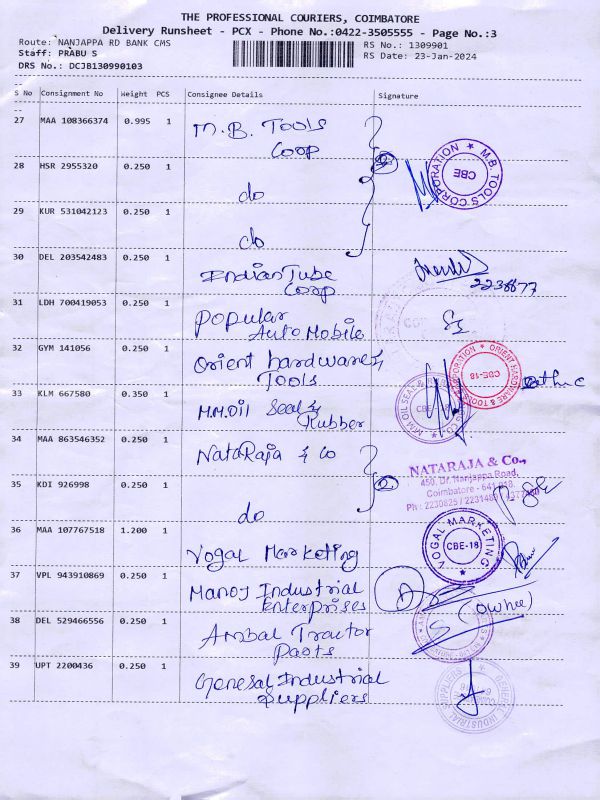 THE PROFESSIONAL COURIERS, COIMBATORE
Delivery Runsheet - PCX - Phone No.:0422-3505555 - Page No.:3
Route: NANJAPPA RD BANK CMS RS No.: 1309901
Staff: PRABU S RS Date: 23-Jan-2024
DRS No.: DCJB130990103
S No Consignment No Weight PCS Consignee Details Signature
27 MAA 108366374 0.995 1 M.B. Tools
Coop
M.B. TOOLS CORPORATION ★ CBE
28 HSR 2955320 0.250 1
do
29 KUR 531042123 0.250 1
do
30 DEL 203542483 0.250 1 Indian Tube
Coop
31 LDH 700419053 0.250 1 Popular
Auto Mobile
32 GYM 141056 0.250 1 Orient hardware &
Tools
ORIENT HARDWARE & TOOLS CORPORATION CBE-18
33 KLM 667580 0.350 1 M.M.Oil Seal &
Rubber
CBE-18
34 MAA 863546352 0.250 1 NataRaja & Co
NATARAJA & Co.,
450, Dr. Nanjappa Road,
Coimbatore - 641 018.
35 KDI 926998 0.250 1
do
36 MAA 107767518 1.200 1 Vogal Marketing
VOGAL MARKETING ★ CBE-18
37 VPL 943910869 0.250 1 Manoj Industrial
Enterprises
38 DEL 529466556 0.250 1 Ambal Tractor
Parts
39 UPT 2200436 0.250 1 General Industrial
Suppliers